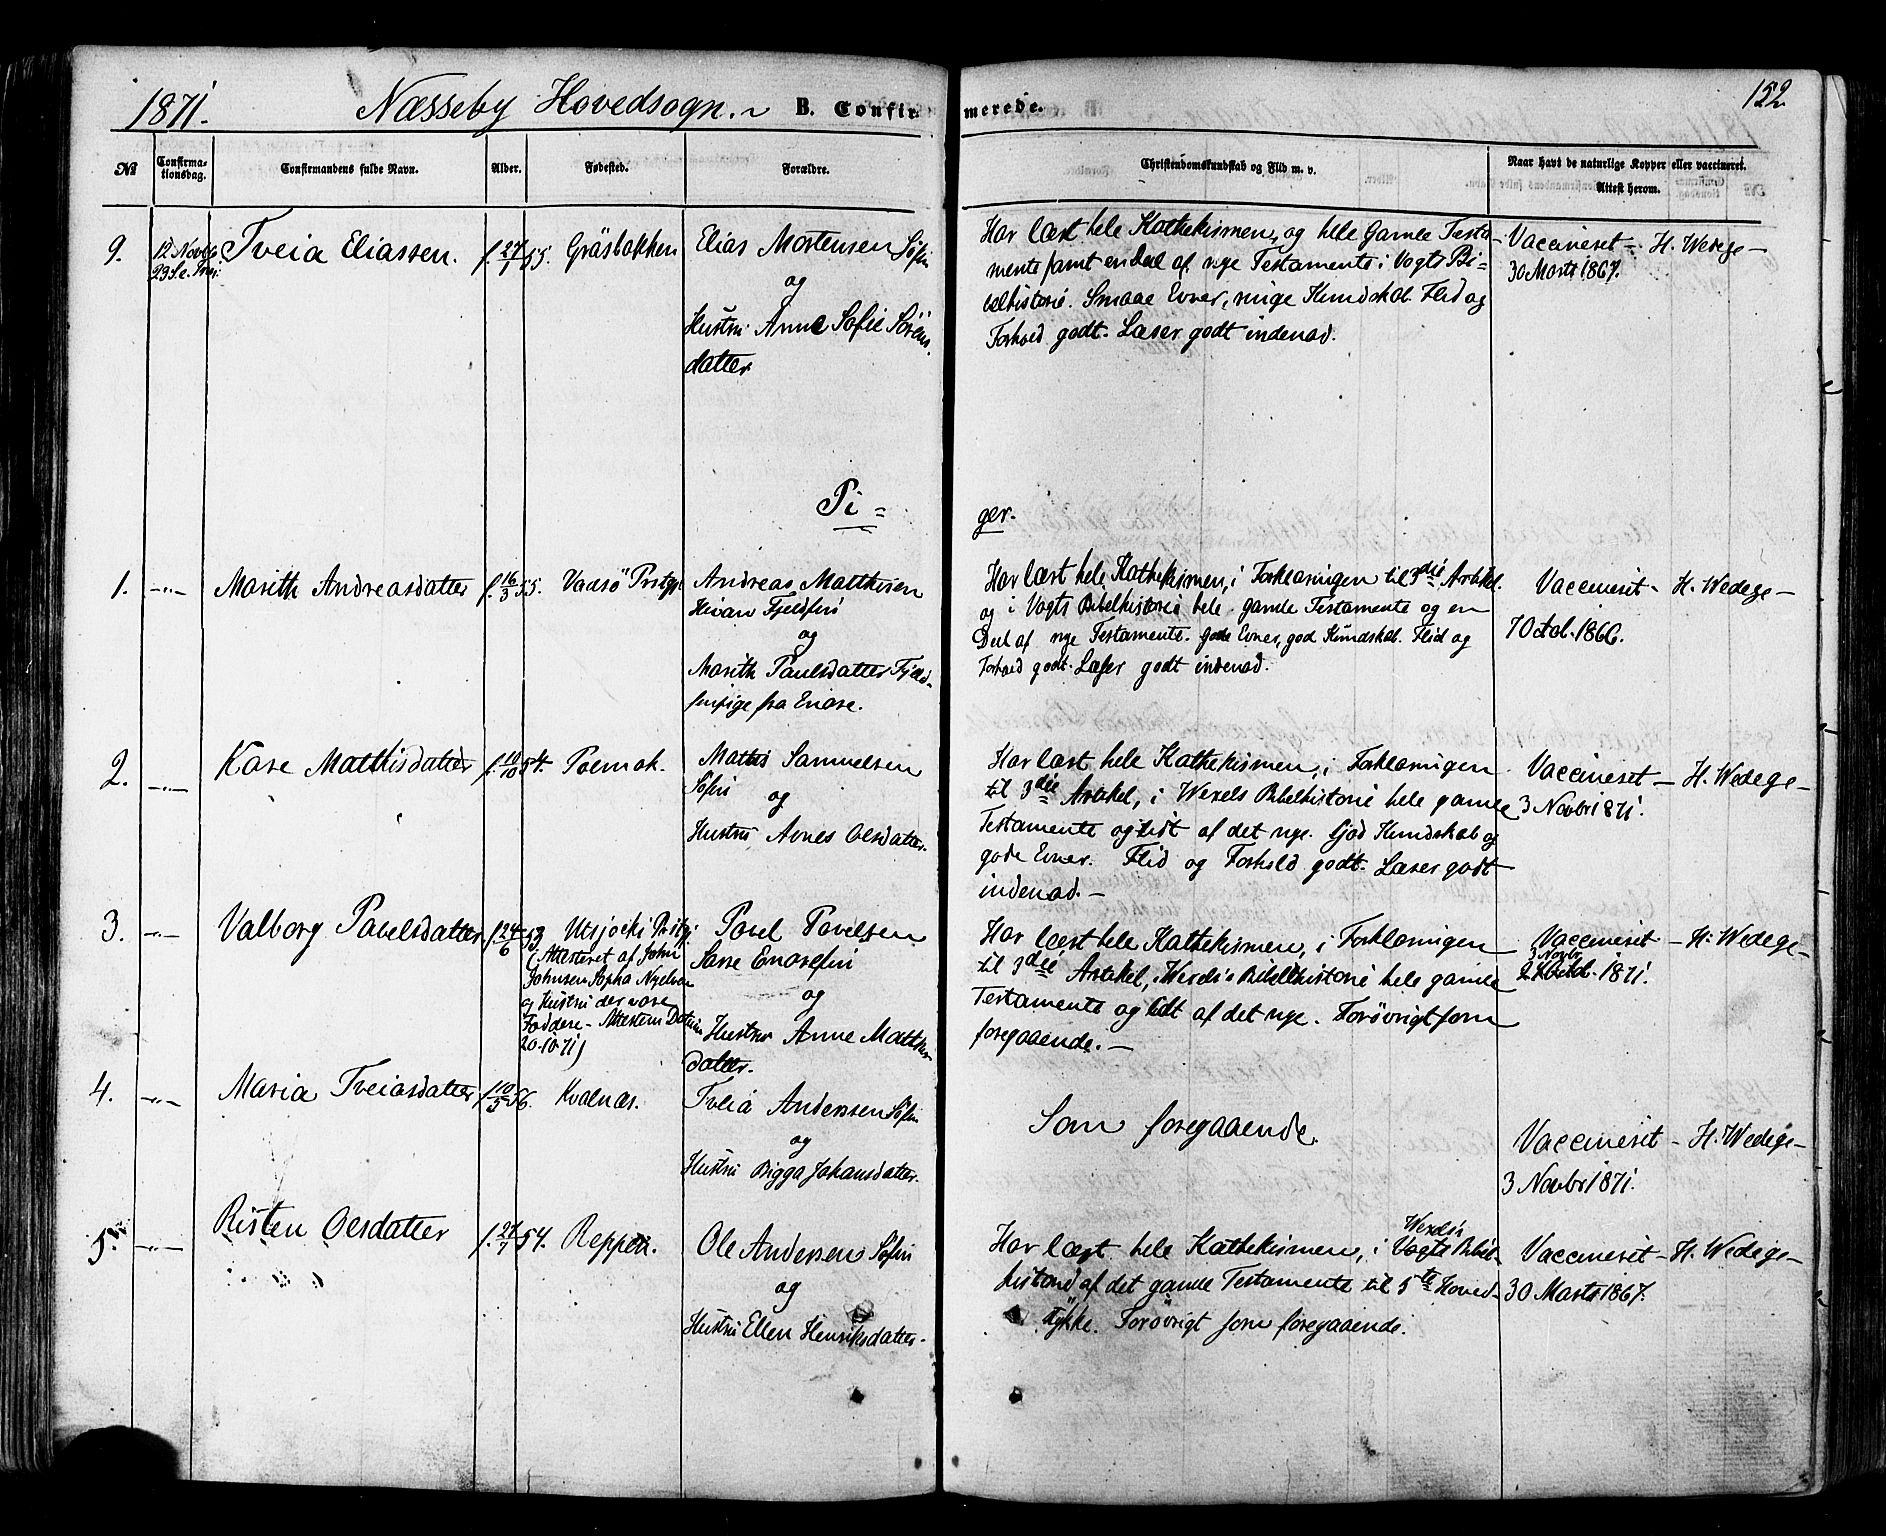 1871. Næsseby Hovedsogn. B. Confirmerede. 152
№ Confirmationsdag. Confirmandens fulde Navn. Alder. Fødested. Forældre. Christendomskundskab og Flid m. v. Naar havt de naturlige Kopper eller vaccineret. Attest herom.
9. 12 Novbr 23 S. e. Tveia Eliassen. f. 27/1 55. Gräsbakken
Elias Mortensen Søfin
og
Hustru Anne Sofie Sørens
datter
Har læst hele Kathekismen, og hele Gamle Testa-
mente samt en Deel af nye Testamente i Vogts Bi-
belhistorie. Smaae Evner, ringe Kundskab. Flid og
Forhold godt. Læser godt indenad.
Vaccineret - H. Wedege -
30 Marts 1867.
Pi = ger.
1. -"- Marith Andreasdatter f. 16/3 55. Vadsö Prstgj.
Andreas Matthisen
Fjeldfin
og
Marith Paulsdatter Fjeld-
finpige fra Enare.
Har læst hele Kathekismen, i Forklaringen til 3die Artikel.
og i Vogts Bibelhistorie hele gamle Testamente og en
Deel af nye Testamente. gode Evner, god Kundskab. Flid og
Forhold godt. Læser godt indenad.
Vaccineret - H. Wedege -
7 Octob. 1866.
2. -"- Kare Mathisdatter f. 10/10 54. Polmak.
Mathis Samuelsen
Søfin
og
Hustru Avnes Olsdatter.
Har læst hele Kathekismen, i Forklaringen
til 3die Artikel, i Wexels Bibelhistorie hele gamle
Testamente og lidt af det nye. God Kundskab og
gode Evner. Flid og Forhold godt. Læser godt
indenad. -
Vaccineret - H. Wedege -
3 Novbr 1871.
3. -"- Valborg Pavelsdatter f. 24/6 53. Utsjocki Prstgj.
(Attesteret af John
Johnsen Sopha Nyelven
og Hustru der vare
Faddere - Attestens Datum
20-10-71)
Pavel Pavelsen
Sarre Enarefin
og
Hustru Anne Mathis
datter.
Har læst hele Kathekismen, i Forklaringen
til 3die Artikel, i Wexels Bibelhistorie hele gamle
Testamente og lidt af det nye. Forøvrigt som
foregaaende. -
Vaccineret - H. Wedege -
3 Novbr
1871.
4. -"- Maria Tveiasdatter f. 10/5 56. Kvalnæs.
Tveia Andersen Søfin
og
Hustru Bigga Johansdatter.
Som foregaaende.
Vaccineret - H. Wedege -
3 Novbr 1871.
5. -"- Risten Olsdatter f. 27/7 54. Reppen.
Ole Andersen Søfin
og
Hustru Ellen Henriksdatter.
Wexels
Har læst hele Kathekismen, i Vogts Bibel-
historie af det gamle Testamente til 5te Hoved-
stykke. Forøvrigt som foregaaende.
Vaccineret - H. Wedege -
30 Marts 1867.